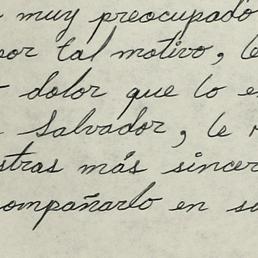 muy preocupado
por tal motivo, le
dolor que lo e
Salvador, le
stras más sincer
ompañarlo en su